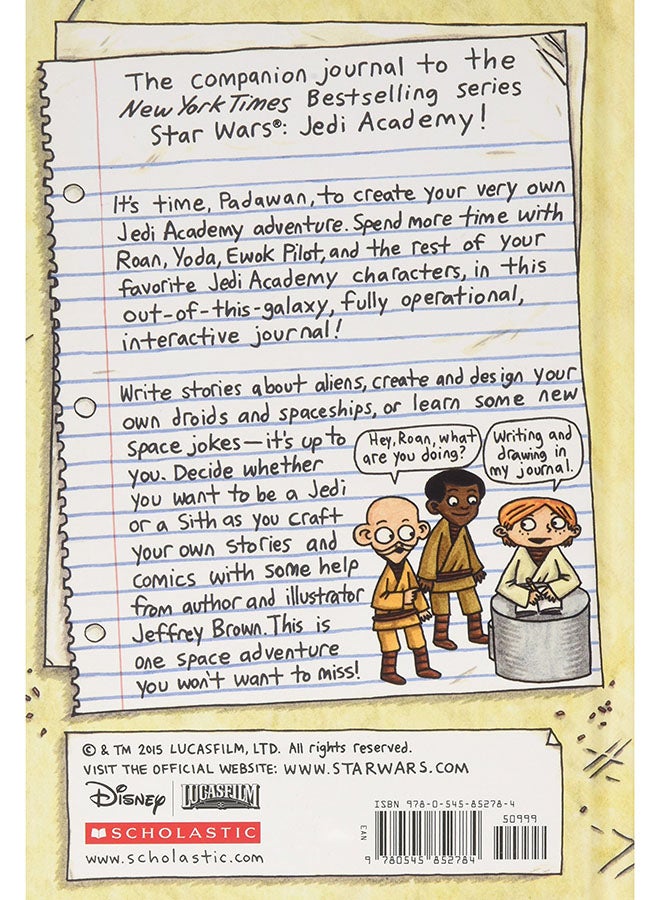 The companion journal to the
New York Times Bestselling series
Star Wars®: Jedi Academy!
It's time, Padawan, to create your very own
Jedi Academy adventure. Spend more time with
Roan, Yoda, Ewok Pilot, and the rest of your
favorite Jedi Academy characters, in this
out-of-this-galaxy, fully operational,
interactive journal!
Write stories about aliens, create and design your
own droids and spaceships, or learn some new
space jokes—it's up to
you. Decide whether
you want to be a Jedi
or a Sith as you craft
your own stories and
comics with some help
from author and illustrator
Jeffrey Brown. This is
one space adventure
you won't want to miss!
Hey, Roan, what
are you doing?
Writing and
drawing in
my journal.
© & TM 2015 LUCASFILM, LTD. All rights reserved.
VISIT THE OFFICIAL WEBSITE: WWW.STARWARS.COM
DISNEY LUCASFILM
SCHOLASTIC
www.scholastic.com
ISBN 978-0-545-85278-4
50999
EAN
9 780545 852784